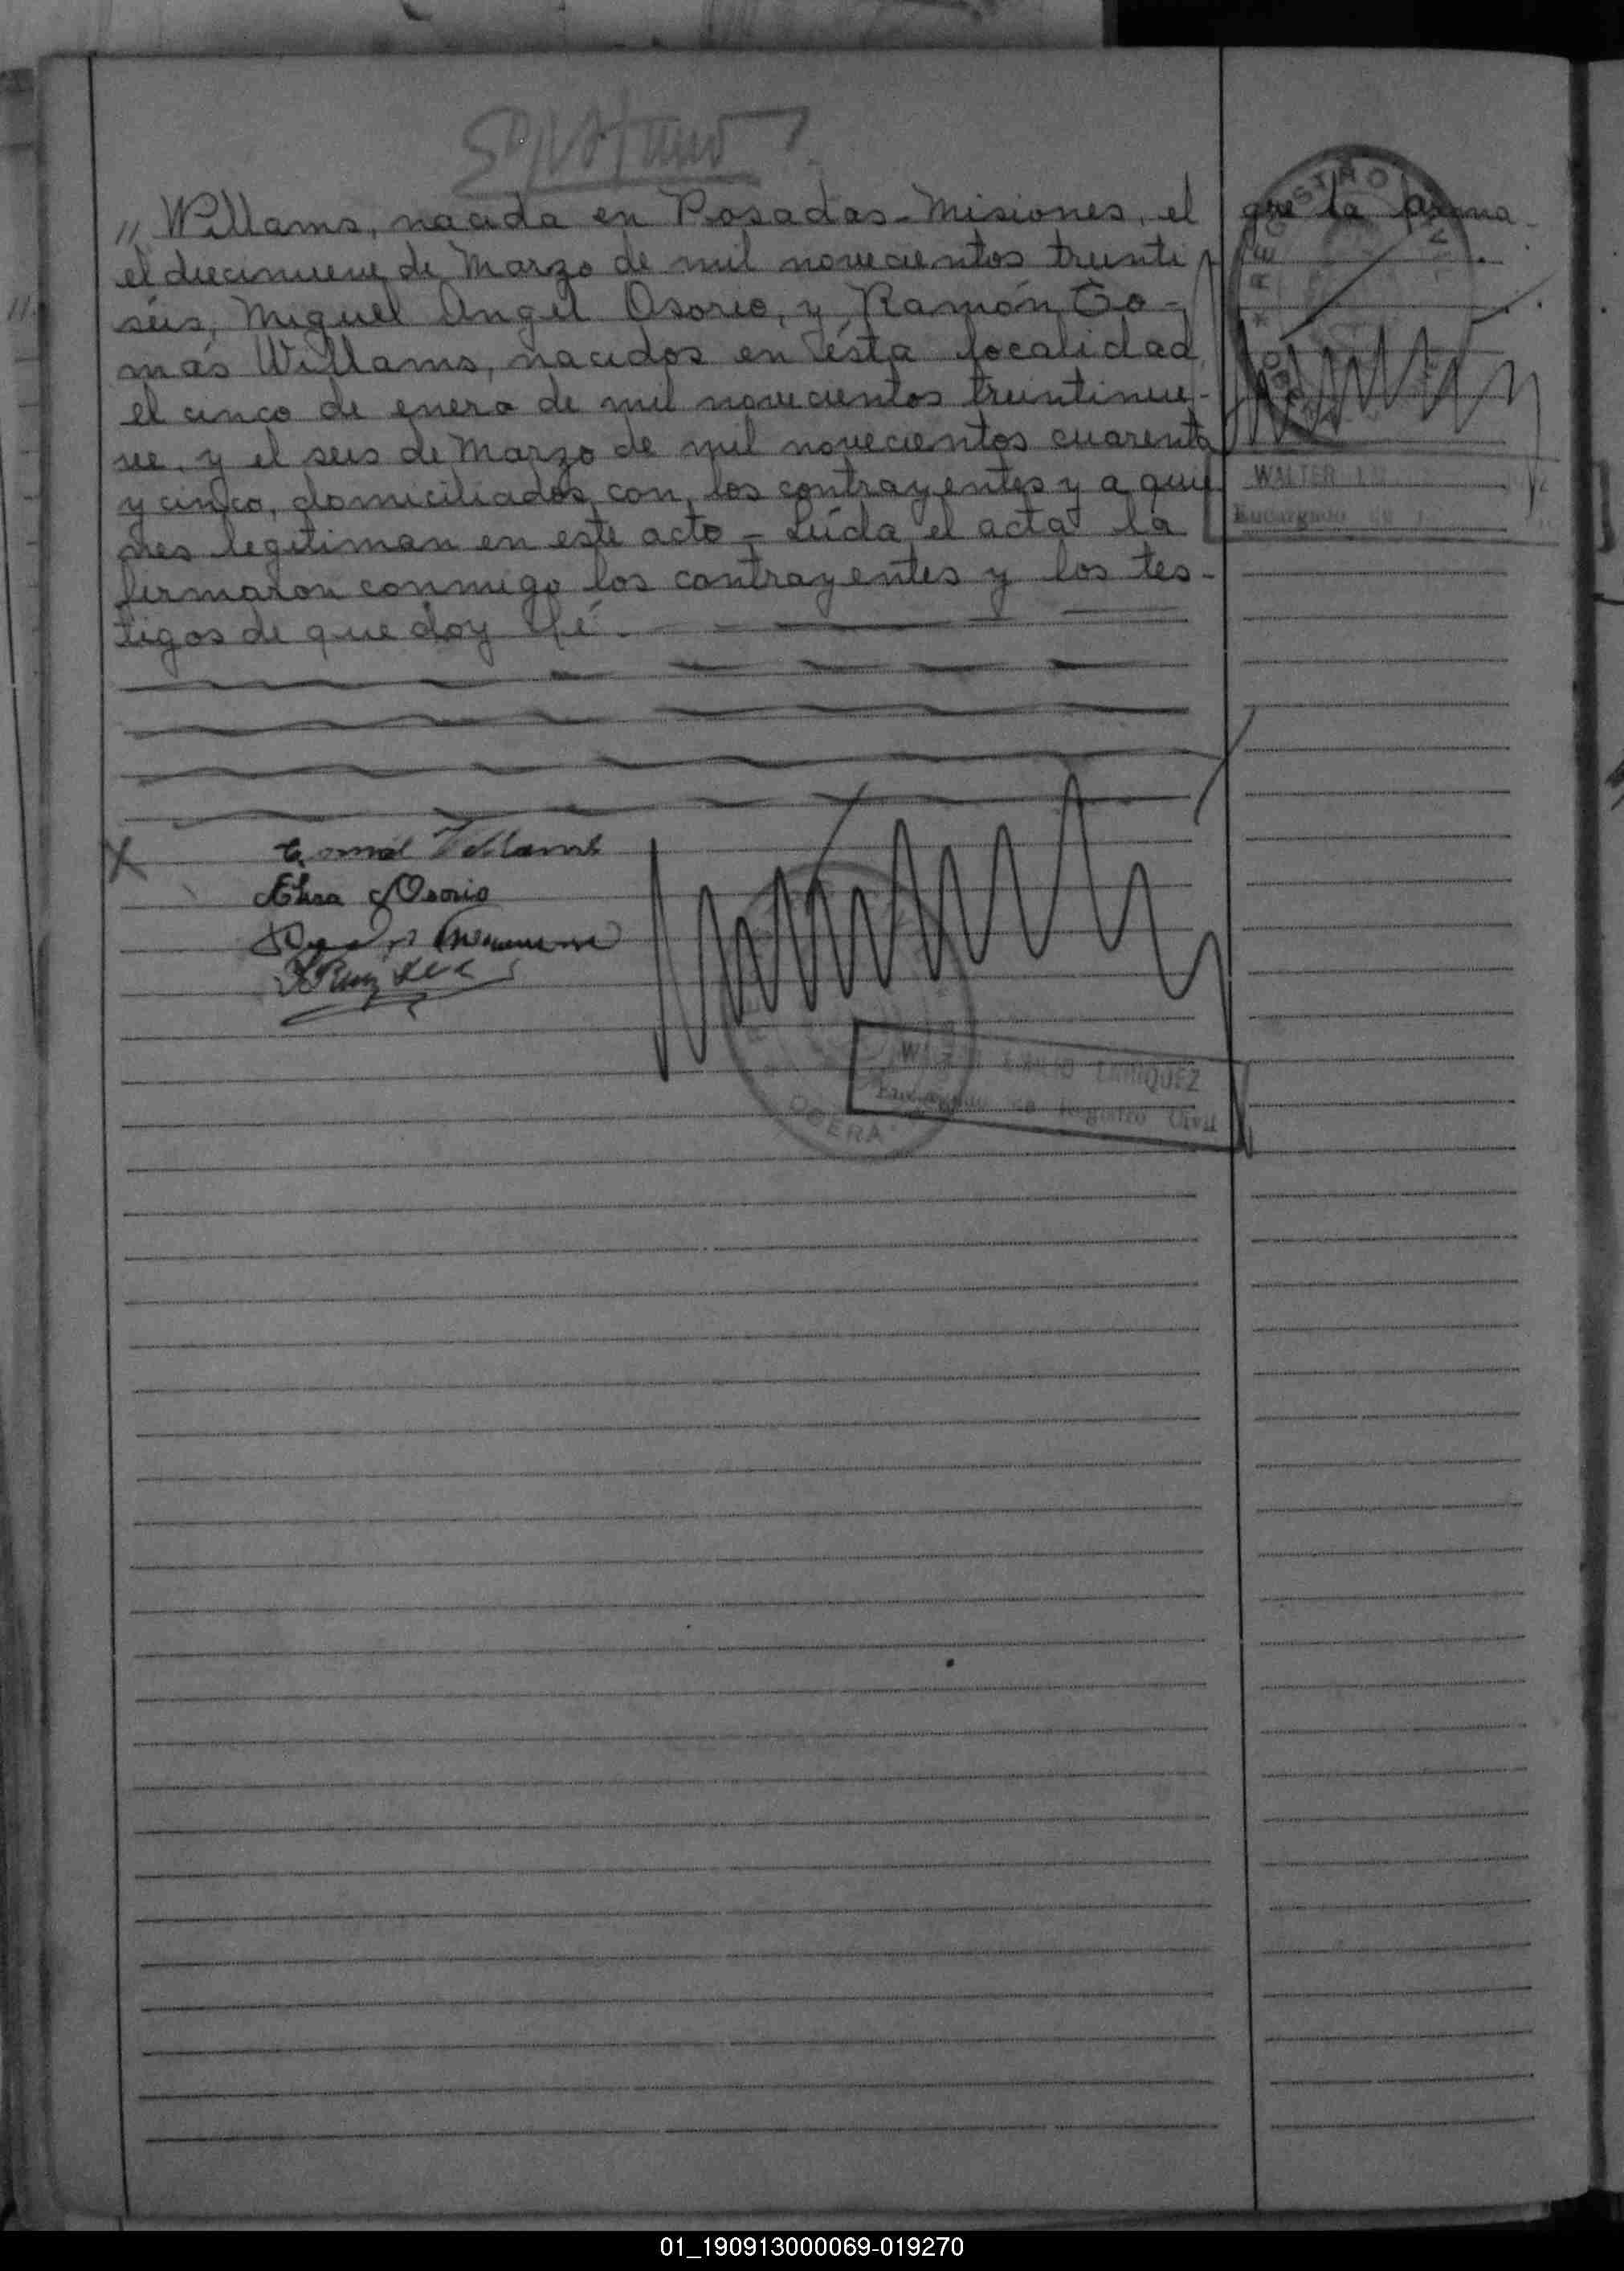 " Willams, nacida en Posadas-Misiones, el
el diecinueve de Marzo de mil novecientos treinti
séis, Miguel Angel Osorio, y Ramón To-
más Willams, nacidos en ésta localidad,
el cinco de enero de mil novecientos treintinue-
ve, y el seis de Marzo de mil novecientos cuarenta
y cinco, domiciliados con los contrayentes y a quie
nes legitiman en este acto - Leída el acta la
firmaron conmigo los contrayentes y los tes-
tigos de que doy fé.
que la
REGISTRO
WALTER
Encargado
Elisa Osorio
ENRIQUEZ
Encargado Registro Civil
OBERA
01_190913000069-019270